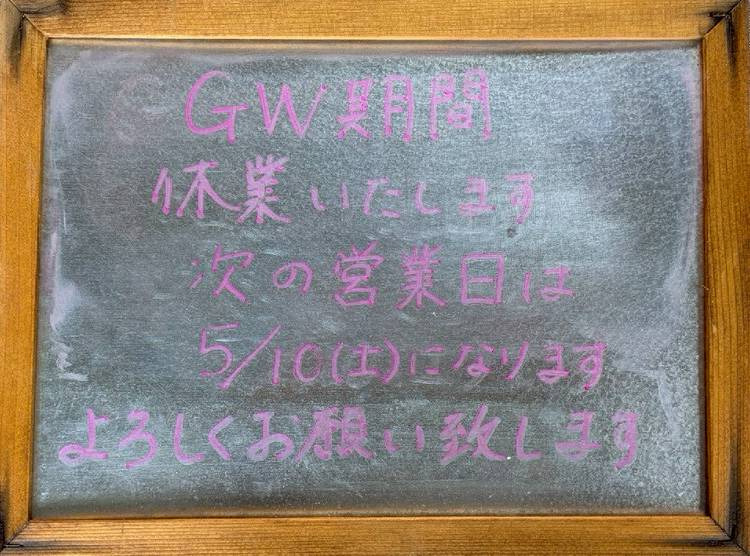 GW期間
休業いたします
次の営業日は
5/10(土)になります
よろしくお願い致します